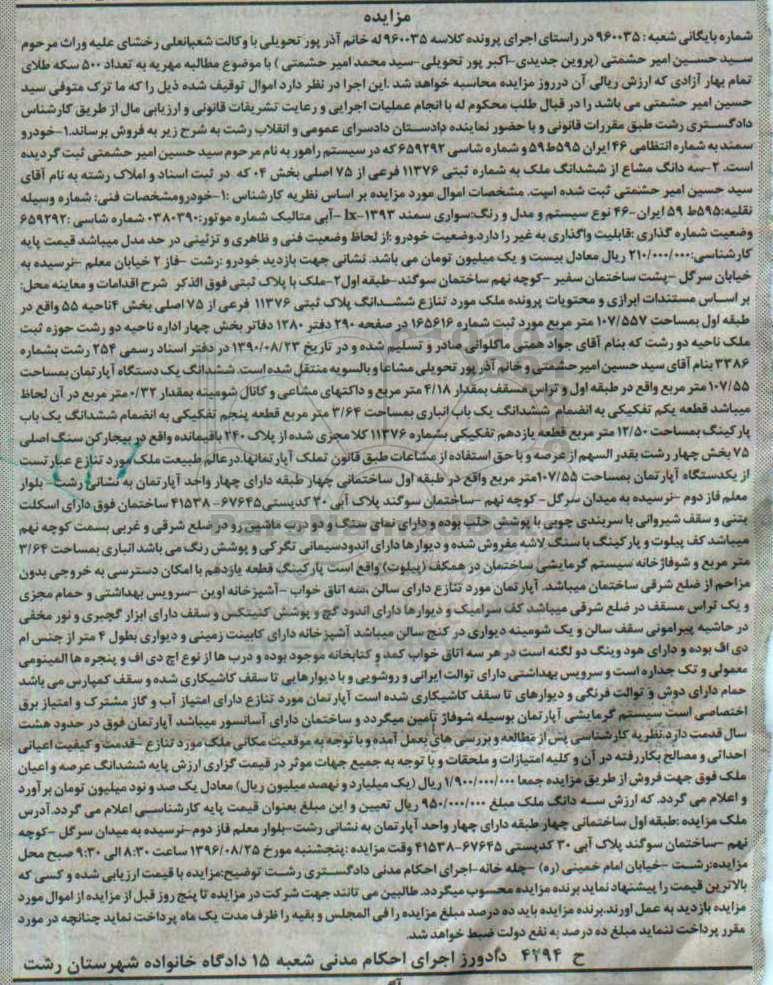 مزایده
شماره بایگانی شعبه : ۹۶۰۰۳۵ در راستای اجرای پرونده کلاسه ۹۶۰۰۳۵ له خانم آذر پور تحویلی با وکالت شعبانعلی رخشای علیه وراث مرحوم
سید حسین امیر حشمتی (پروین جدیدی-اکبر پور تحویلی-سید محمد امیر حشمتی ) با موضوع مطالبه مهریه به تعداد ۵۰۰ سکه طلای
تمام بهار آزادی که ارزش ریالی آن درروز مزایده محاسبه خواهد شد .این اجرا در نظر دارد اموال توقیف شده ذیل را که ما ترک متوفی سید
حسین امیر حشمتی می باشد را در قبال طلب محکوم له با انجام عملیات اجرایی و رعایت تشریفات قانونی و ارزیابی مال از طریق کارشناس
دادگستری رشت طبق مقررات قانونی و با حضور نماینده دادستان دادسرای عمومی و انقلاب رشت به شرح زیر به فروش برساند.۱-خودرو
سمند به شماره انتظامی ۴۶ ایران ۵۹۵ط۵۹ و شماره شاسی ۶۵۹۲۹۲ که در سیستم راهور به نام مرحوم سید حسین امیر حشمتی ثبت گردیده
است. ۲-سه دانگ مشاع از ششدانگ ملک به شماره ثبتی ۱۱۳۷۶ فرعی از ۷۵ اصلی بخش ۰۴ که در ثبت اسناد و املاک رشته به نام آقای
سید حسین امیر حشمتی ثبت شده است. مشخصات اموال مورد مزایده بر اساس نظریه کارشناس :۱-خودرومشخصات فنی: شماره وسیله
نقلیه:۵۹۵ط ۵۹ ایران-۴۶ نوع سیستم و مدل و رنگ:سواری سمند lx-۱۳۹۳ -آبی متالیک شماره موتور:۰۳۸۰۳۹۰ شماره شاسی :۶۵۹۲۹۲
وضعیت شماره گذاری :قابلیت واگذاری به غیر را دارد.وضعیت خودرو :از لحاظ وضعیت فنی و ظاهری و تزئینی در حد مدل میباشد قیمت پایه
کارشناسی:۲۱۰/۰۰۰/۰۰۰ ریال معادل بیست و یک میلیون تومان می باشد. نشانی جهت بازدید خودرو :رشت -فاز ۲ خیابان معلم -نرسیده به
خیابان سرگل -پشت ساختمان سفیر -کوچه نهم ساختمان سوگند-طبقه اول۲-ملک با پلاک ثبتی فوق الذکر شرح اقدامات و معاینه محل:
بر اساس مستندات ابرازی و محتویات پرونده ملک مورد تنازع ششدانگ پلاک ثبتی ۱۱۳۷۶ فرعی از ۷۵ اصلی بخش ۴ناحیه ۵۵ واقع در
طبقه اول بمساحت ۱۰۷/۵۵۷ متر مربع مورد ثبت شماره ۱۶۵۶۱۶ در صفحه ۲۹۰ دفتر ۱۳۸۰ دفاتر بخش چهار اداره ناحیه دو رشت حوزه ثبت
ملک ناحیه دو رشت که بنام آقای جواد همتی ماکلوانی صادر و تسلیم شده و در تاریخ ۱۳۹۰/۰۸/۲۳ در دفتر اسناد رسمی ۲۵۴ رشت بشماره
۳۳۸۶ بنام آقای سید حسین امیر حشمتی و خانم آذر پور تحویلی مشاعا و بالسویه منتقل شده است. ششدانگ یک دستگاه آپارتمان بمساحت
۱۰۷/۵۵ متر مربع واقع در طبقه اول و تراس مسقف بمقدار ۴/۱۸ متر مربع و داکتهای مشاعی و کانال شومینه بمقدار ۰/۳۲ متر مربع در آن لحاظ
میباشد قطعه یکم تفکیکی به انضمام ششدانگ یک باب انباری بمساحت ۳/۶۴ متر مربع قطعه پنجم تفکیکی به انضمام ششدانگ یک باب
پارکینگ بمساحت ۱۲/۵۰ متر مربع قطعه یازدهم تفکیکی بشماره ۱۱۳۷۶ کلا مجزی شده از پلاک ۲۴۰ باقیمانده واقع در بیجارکن سنگ اصلی
۷۵ بخش چهار رشت بقدر السهم از عرصه و با حق استفاده از مشاعات طبق قانون تملک آپارتمانها.درعالم طبیعت ملک مورد تنازع عبارتست
از یکدستگاه آپارتمان بمساحت ۱۰۷/۵۵متر مربع واقع در طبقه اول ساختمانی چهار طبقه دارای چهار واحد آپارتمان به نشانی رشت - بلوار
معلم فاز دوم -نرسیده به میدان سرگل- کوچه نهم -ساختمان سوگند پلاک آبی ۳۰ کدپستی۶۷۶۴۵-۴۱۵۳۸ ساختمان فوق دارای اسکلت
بتنی و سقف شیروانی با سربندی چوبی با پوشش حلب بوده و دارای نمای سنگ و دو درب ماشین رو در ضلع شرقی و غربی بسمت کوچه نهم
میباشد کف پیلوت و پارکینگ با سنگ لاشه مفروش شده و دیوارها دارای اندودسیمانی تگرکی و پوشش رنگ می باشد انباری بمساحت ۳/۶۴
متر مربع و شوفاژخانه سیستم گرمایشی ساختمان در همکف (پیلوت) واقع است پارکینگ قطعه یازدهم با امکان دسترسی به خروجی بدون
مزاحم از ضلع شرقی ساختمان میباشد. آپارتمان مورد تنازع دارای سالن ،سه اتاق خواب -آشپزخانه اوپن -سرویس بهداشتی و حمام مجزی
و یک تراس مسقف در ضلع شرقی میباشد کف سرامیک و دیوارها دارای اندود گچ و پوشش کنیتکس و سقف دارای ابزار گچبری و نور مخفی
در حاشیه پیرامونی سقف سالن و یک شومینه دیواری در کنج سالن میباشد آشپزخانه دارای کابینت زمینی و دیواری بطول ۴ متر از جنس ام
دی اف بوده و دارای هود وینگ دو لگنه است در هر سه اتاق خواب کمد و کتابخانه موجود بوده و درب ها از نوع اچ دی اف و پنجره ها المینومی
معمولی و تک جداره است و سرویس بهداشتی دارای توالت ایرانی و روشویی و با دیوارهایی تا سقف کاشیکاری شده و سقف کمپارس می باشد
حمام دارای دوش و توالت فرنگی و دیوارهای تا سقف کاشیکاری شده است آپارتمان مورد تنازع دارای امتیاز آب و گاز مشترک و امتیاز برق
اختصاصی است سیستم گرمایشی آپارتمان بوسیله شوفاژ تامین میگردد و ساختمان دارای آسانسور میباشد آپارتمان فوق در حدود هشت
سال قدمت دارد.نظریه کارشناسی پس از مطالعه و بررسی های بعمل آمده و با توجه به موقعیت مکانی ملک مورد تنازع -قدمت و کیفیت اعیانی
احداثی و مصالح بکاررفته در آن و کلیه امتیازات و ملحقات و با توجه به جمیع جهات موثر در قیمت گزاری ارزش پایه ششدانگ عرصه و اعیان
ملک فوق جهت فروش از طریق مزایده جمعا ۱/۹۰۰/۰۰۰/۰۰۰ ریال (یک میلیارد و نهصد میلیون ریال) معادل یک صد و نود میلیون تومان برآورد
و اعلام می گردد. که ارزش سه دانگ ملک مبلغ ۹۵۰/۰۰۰/۰۰۰ ریال تعیین و این مبلغ بعنوان قیمت پایه کارشناسی اعلام می گردد.آدرس
ملک مزایده :طبقه اول ساختمانی چهار طبقه دارای چهار واحد آپارتمان به نشانی رشت-بلوار معلم فاز دوم-نرسیده به میدان سرگل -کوچه
نهم -ساختمان سوگند پلاک آبی ۳۰ کدپستی ۶۷۶۴۵-۴۱۵۳۸ وقت مزایده :پنجشنبه مورخ ۱۳۹۶/۰۸/۲۵ ساعت ۸:۳۰ الی ۹:۳۰ صبح محل
مزایده:رشت -خیابان امام خمینی (ره) -چله خانه-اجرای احکام مدنی دادگستری رشت توضیح:مزایده با قیمت ارزیابی شده و کسی که
بالاترین قیمت را پیشنهاد نماید برنده مزایده محسوب میگردد. طالبین می توانند جهت شرکت در مزایده تا پنج روز قبل از مزایده از اموال مورد
مزایده بازدید به عمل آورند.برنده مزایده باید ده درصد مبلغ مزایده را فی المجلس و بقیه را ظرف مدت یک ماه پرداخت نماید چنانچه در مورد
مقرر پرداخت ننماید مبلغ ده درصد به نفع دولت ضبط خواهد شد.
ح ۴۲۹۴ دادورز اجرای احکام مدنی شعبه ۱۵ دادگاه خانواده شهرستان رشت